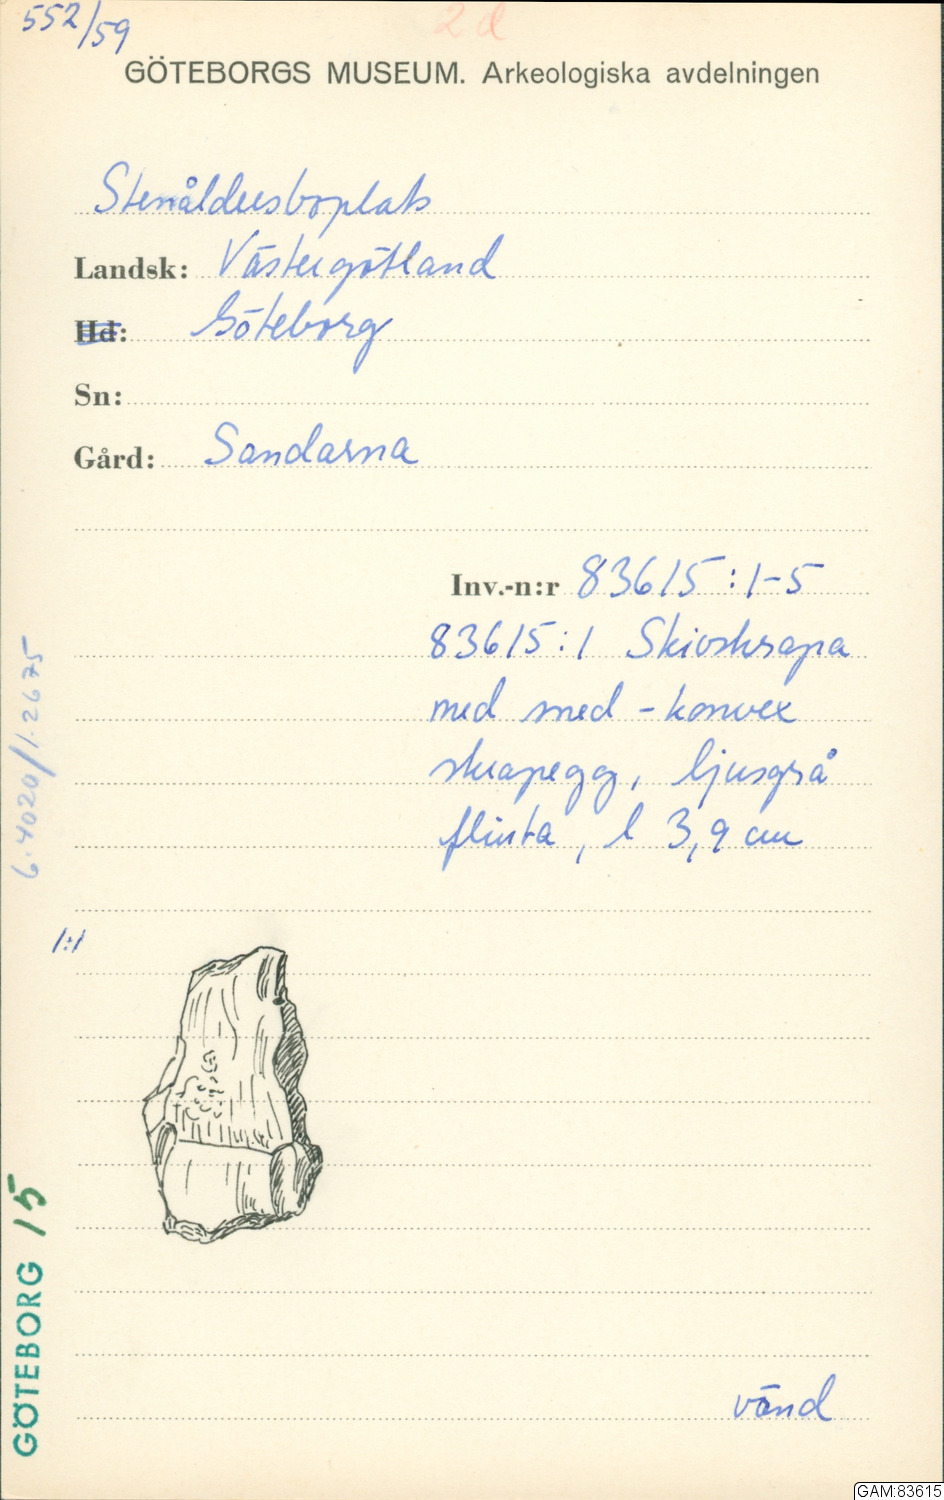 552/59
2d
GÖTEBORGS MUSEUM. Arkeologiska avdelningen
Stenåldersboplats
Landsk: Västergötland
Hd: Göteborg
Sn:
Gård: Sandarna
Inv.-n:r 83615:1-5
83615:1 Skivskrapa
med sned-konvex
skrapegg, ljusgrå
flinta, l 3,9 cm
6.4020/1.2675
1:1
GÖTEBORG 15
vänd
GAM:83615